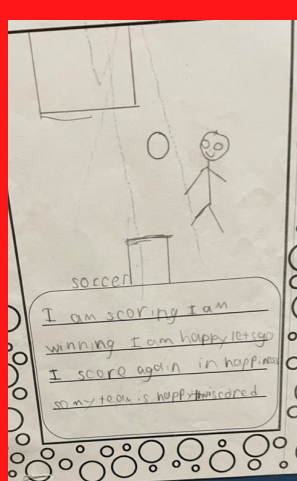 soccer
I am scoring I am
winning I am happy letsgo
I score again in happiness
so my team is happy scored